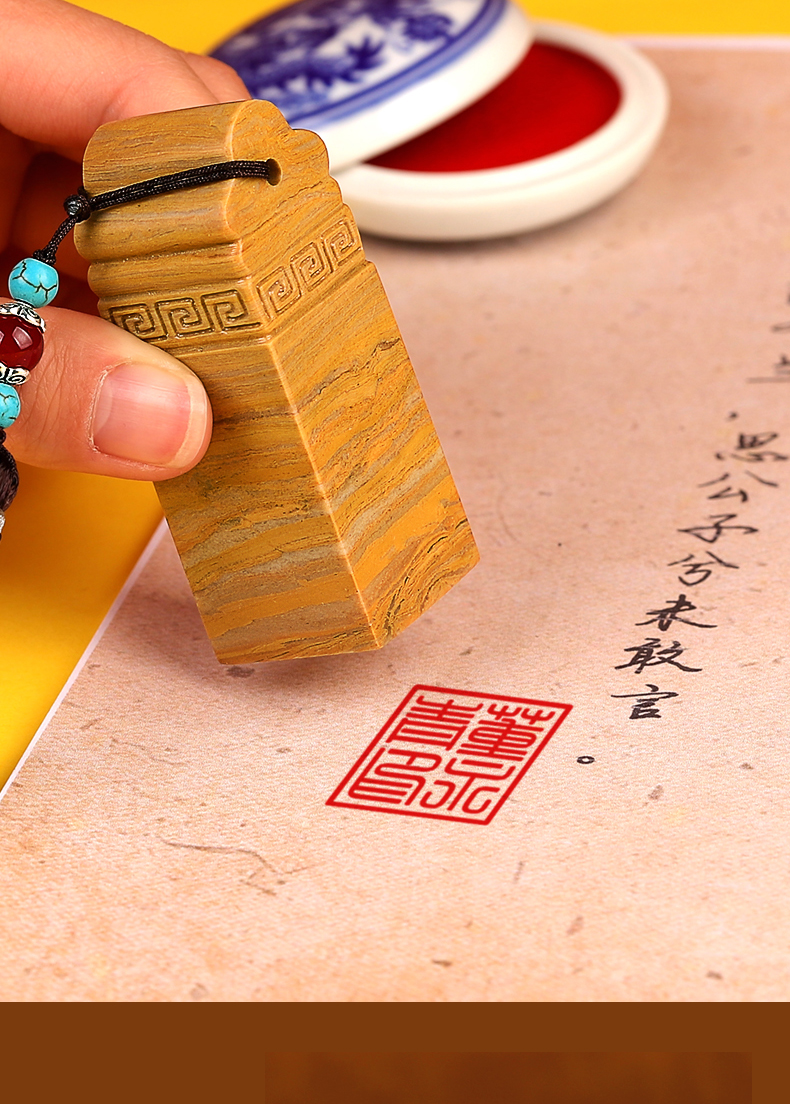 思公子兮未敢言。
董
青印